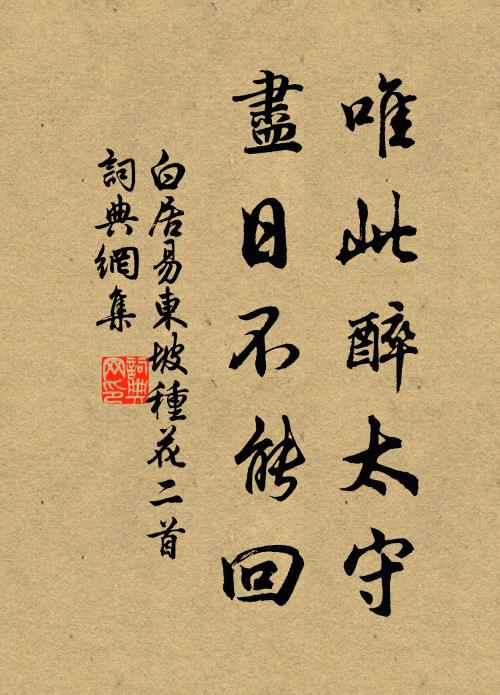 唯此醉太守
盡日不能回
白居易東坡種花二首
詞典網集
詞典网印